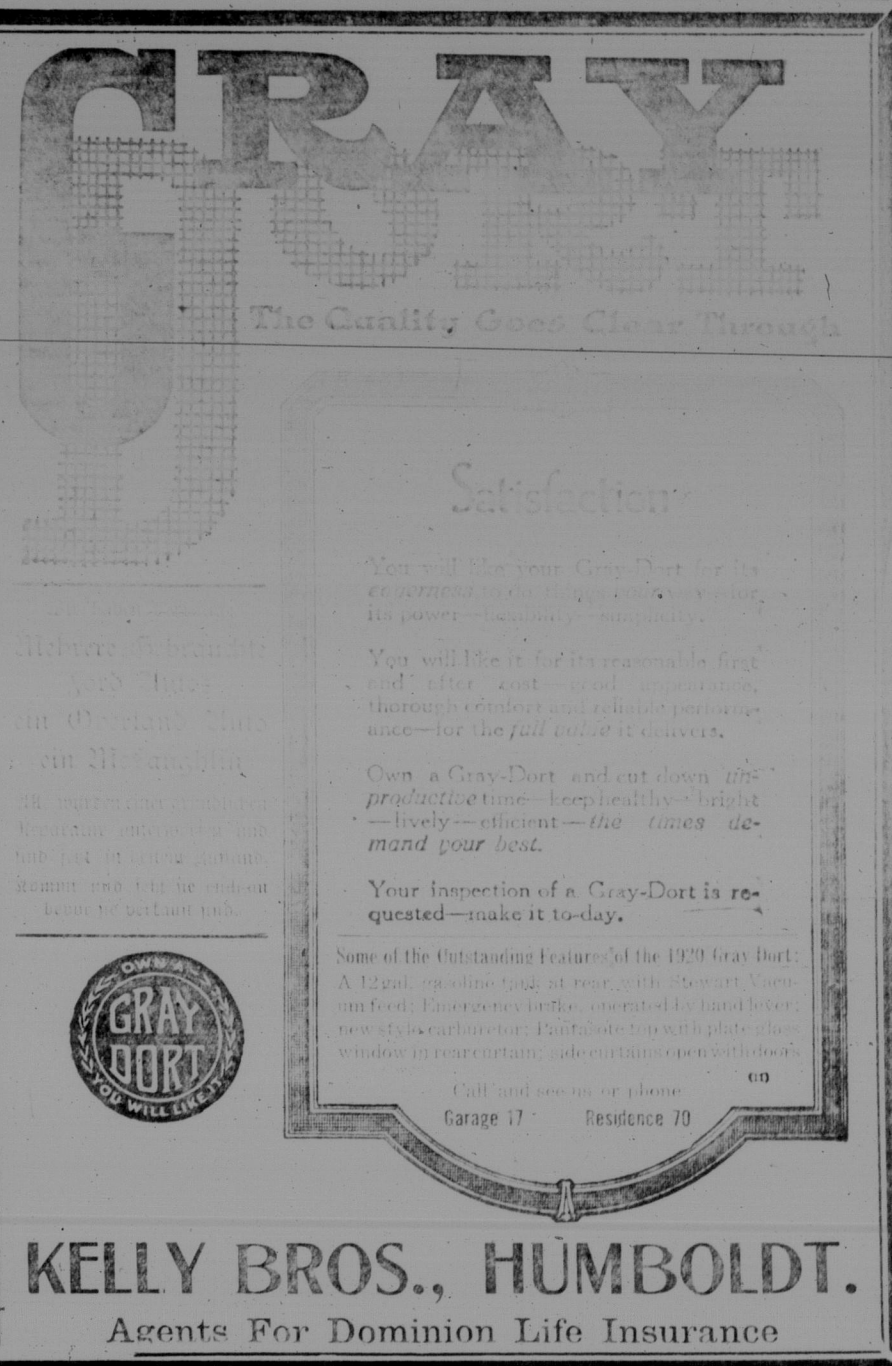 GRAY
DORT
The Quality Goes Clear Through
Satisfaction
You will like your Gray-Dort for its
eagerness to do things your way—for
its power—flexibility—simplicity.
You will like it for its reasonable first
and after cost—good appearance,
thorough comfort and reliable perform-
ance—for the full value it delivers.
Own a Gray-Dort and cut down un-
productive time—keep healthy—bright
—lively—efficient—the times de-
mand your best.
Your inspection of a Gray-Dort is re-
quested—make it to-day.
Some of the Outstanding Features of the 1920 Gray Dort:
A 12 gal. gasoline tank at rear with Stewart Vacu-
um feed; Emergency brake, operated by hand lever;
new style carburetor; Pantasote top with plate glass
window in rear curtain; side curtains open with doors
Call and see us or phone
Garage 17 Residence 70
Mehrere Gebrauchte
Ford Autos
ein Overland Auto
ein McLaughlin
OWN A
GRAY
DORT
YOU WILL LIKE IT
KELLY BROS., HUMBOLDT.
Agents For Dominion Life Insurance